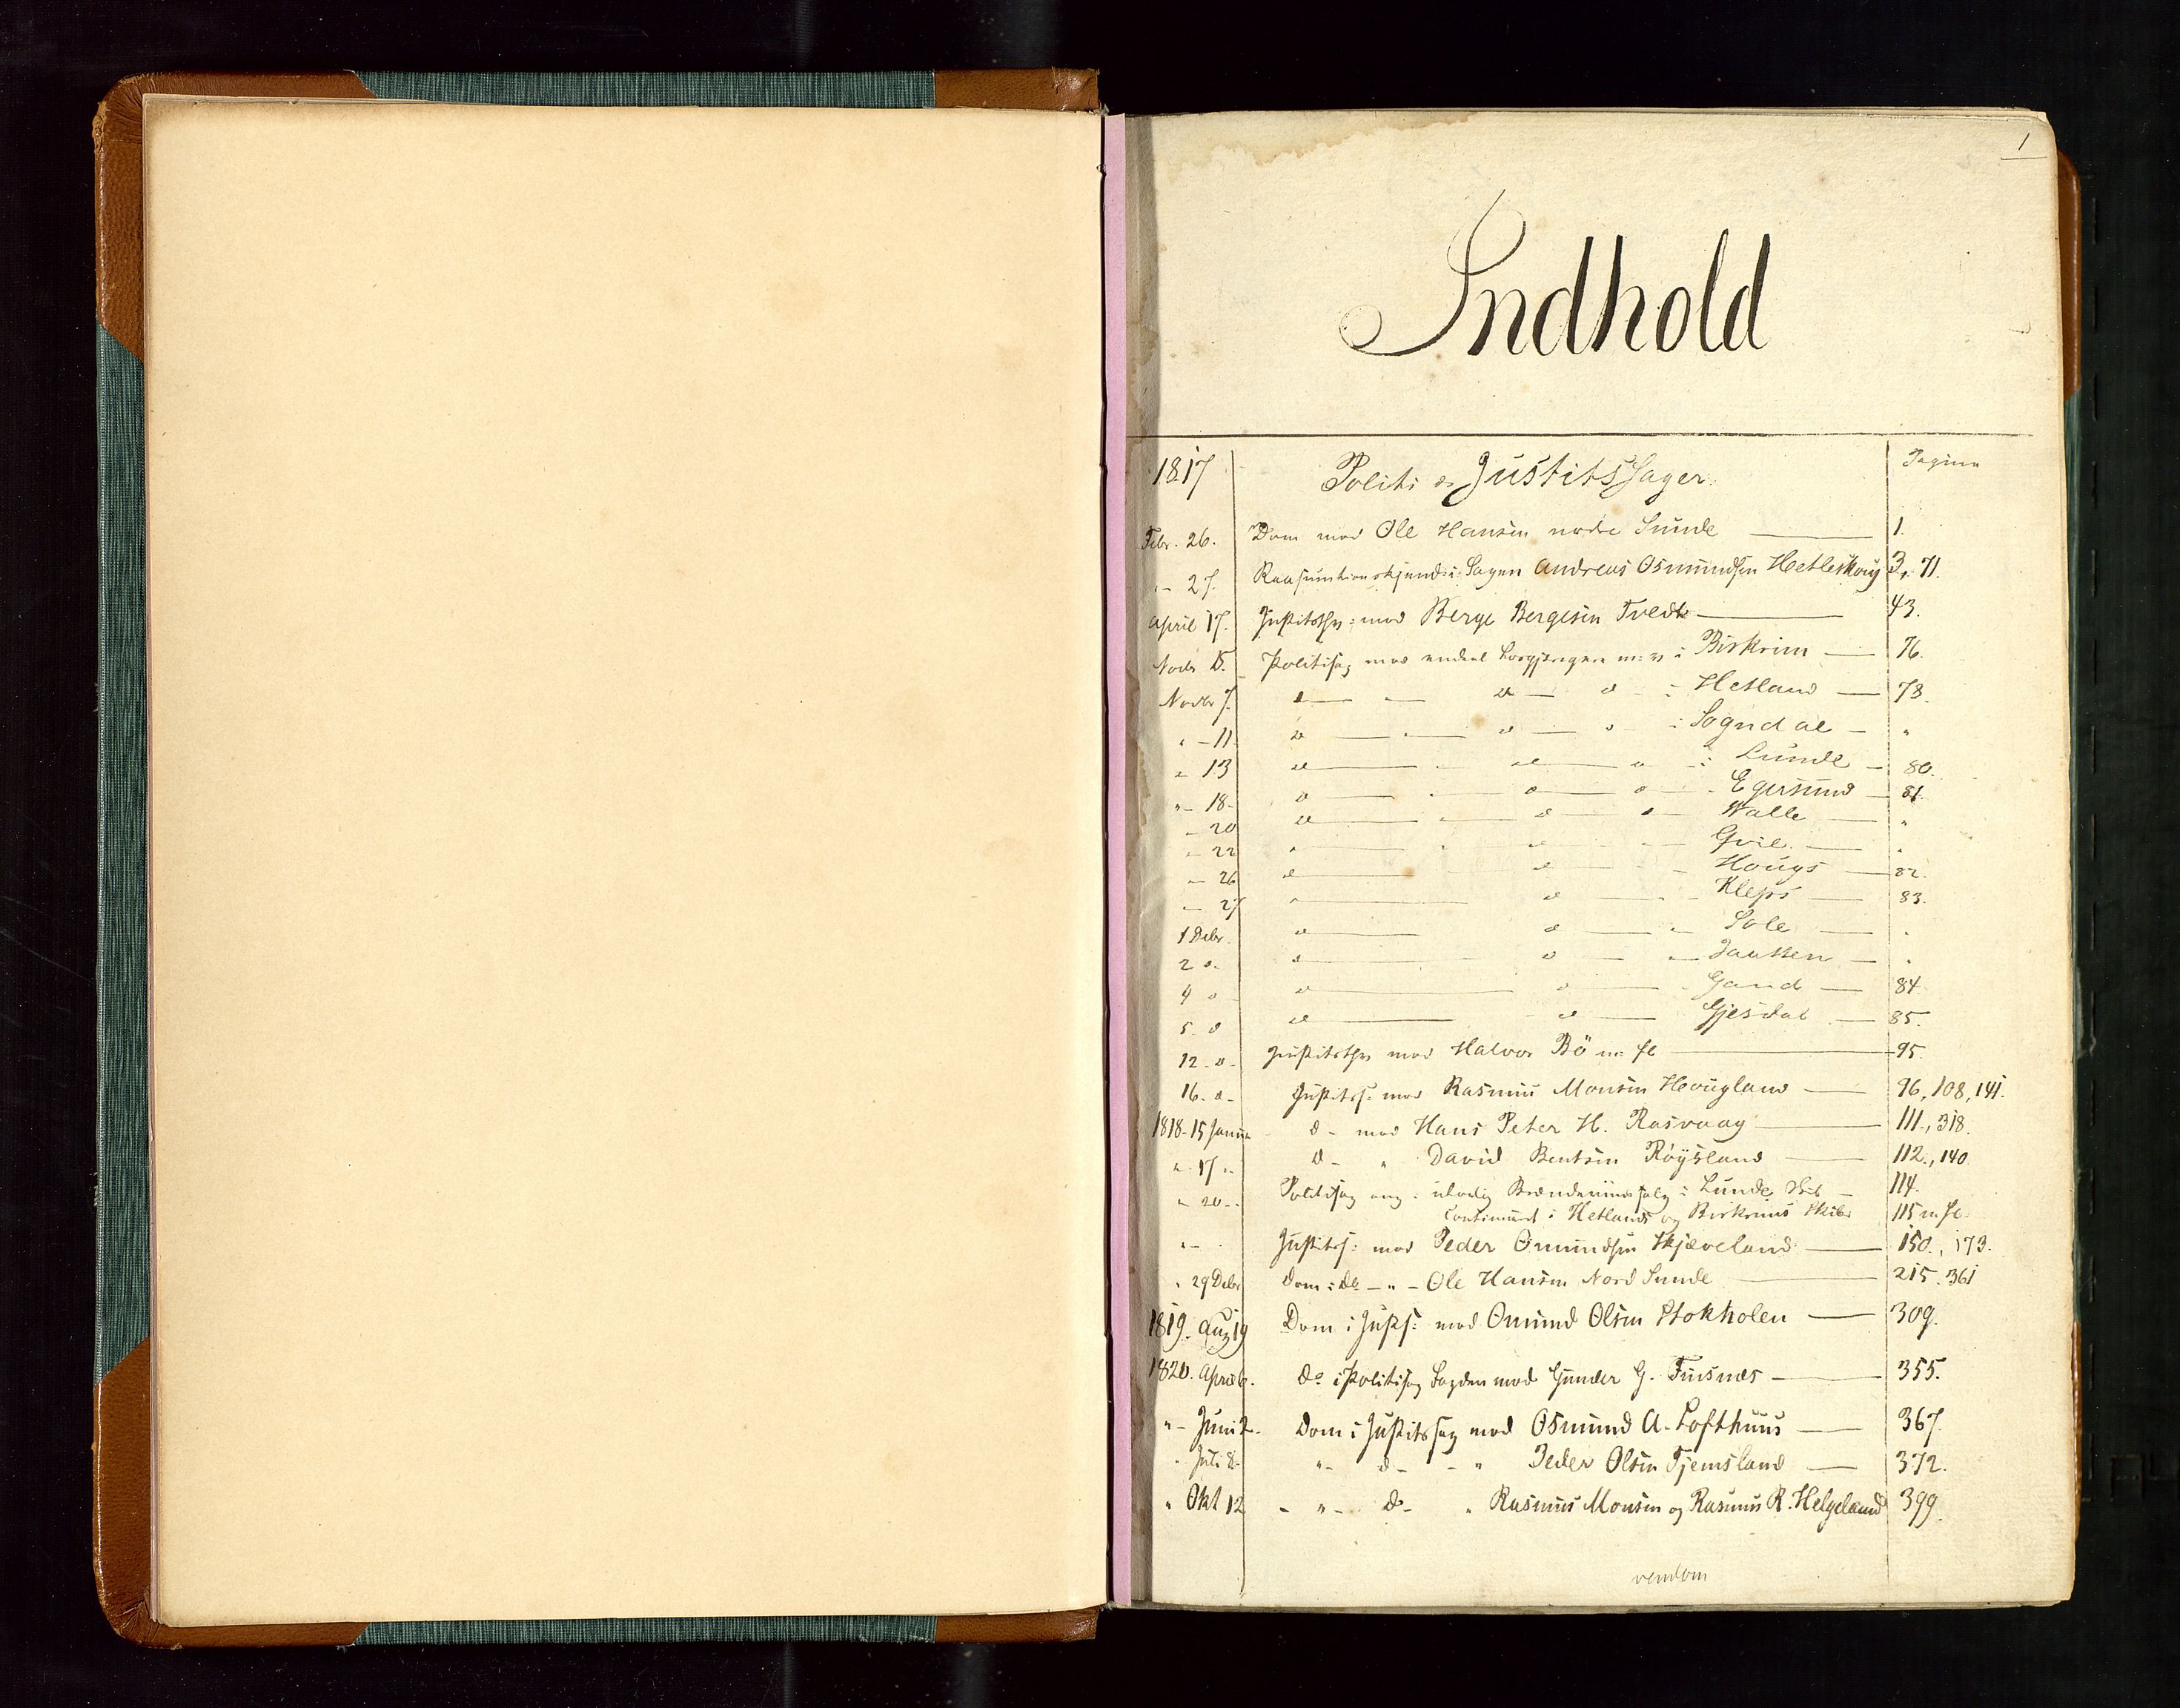 1
Indhold
1817 Politi & Justits Sager Pagina
Febr. 26. Dom mod Ole Hansen nordre Sunde — 1.
" - 27. i Sagen Andreas Osmundsen Hetleskoug 3, 71.
April 17. Justitssag: mod Berge Bergesen Tvedt — 43.
Novbr 5. Politisag mod endeel i Birkrim — 76.
Novbr 7. d — d — d - : Hetland — 78.
" - 11. d — d — d - : Sogndal — "
" 13 d — d — d - : Lunde — 80.
" - 18 - d — d — d - Egersund — 81.
- 20 d — d — d Walle — "
- 22 " — d — Qvie — "
- 26 d — d — Hougs — 82.
- 27 " — d — Kleps — 83.
1 Debr. d — d — Sole — "
2 d. d — d — Jaatten — "
4 d - d — d — Gand — 84.
5 - d d — d — Gjesdal — 85.
12 - d - Justitssag mod Halvor Bö m: fl — 95.
16. d - Justitss: mod Rasmus Monsen Hougland — 96, 108, 141.
1818 - 15 Janua d - mod Hans Peter H. Rasvaag — 111., 318.
" 17 " d - " David Bentsen Röÿsland — 112., 140
" 20 - Politisag ang: ulovlig Brændeviinssalg i Lunde Skib — 114.
continueret i Hetlands og Birkrims Skibr 115 m fl.
" - Justitss: mod Peder Omundsen Skjæveland — 150., 173.
" 29 Debr Dom i do - " - Ole Hansen Nord Sunde — 215. 361
1819. Aug 19 Dom i Justs: mod Omund Olsen Stokholen — 309.
1820. April 6. do i Politisag mod Gunder G. Fuisnæs — 355.
" - Juni 2 - Dom i Justitssag mod Osmund A. Lofthuus — 367.
" Juli 8 - " - d - - " Peder Olsen Tjemsland — 372.
" Okt 12 - " - do - " Rasmus Monsen og Rasmus R. Helgeland 399.